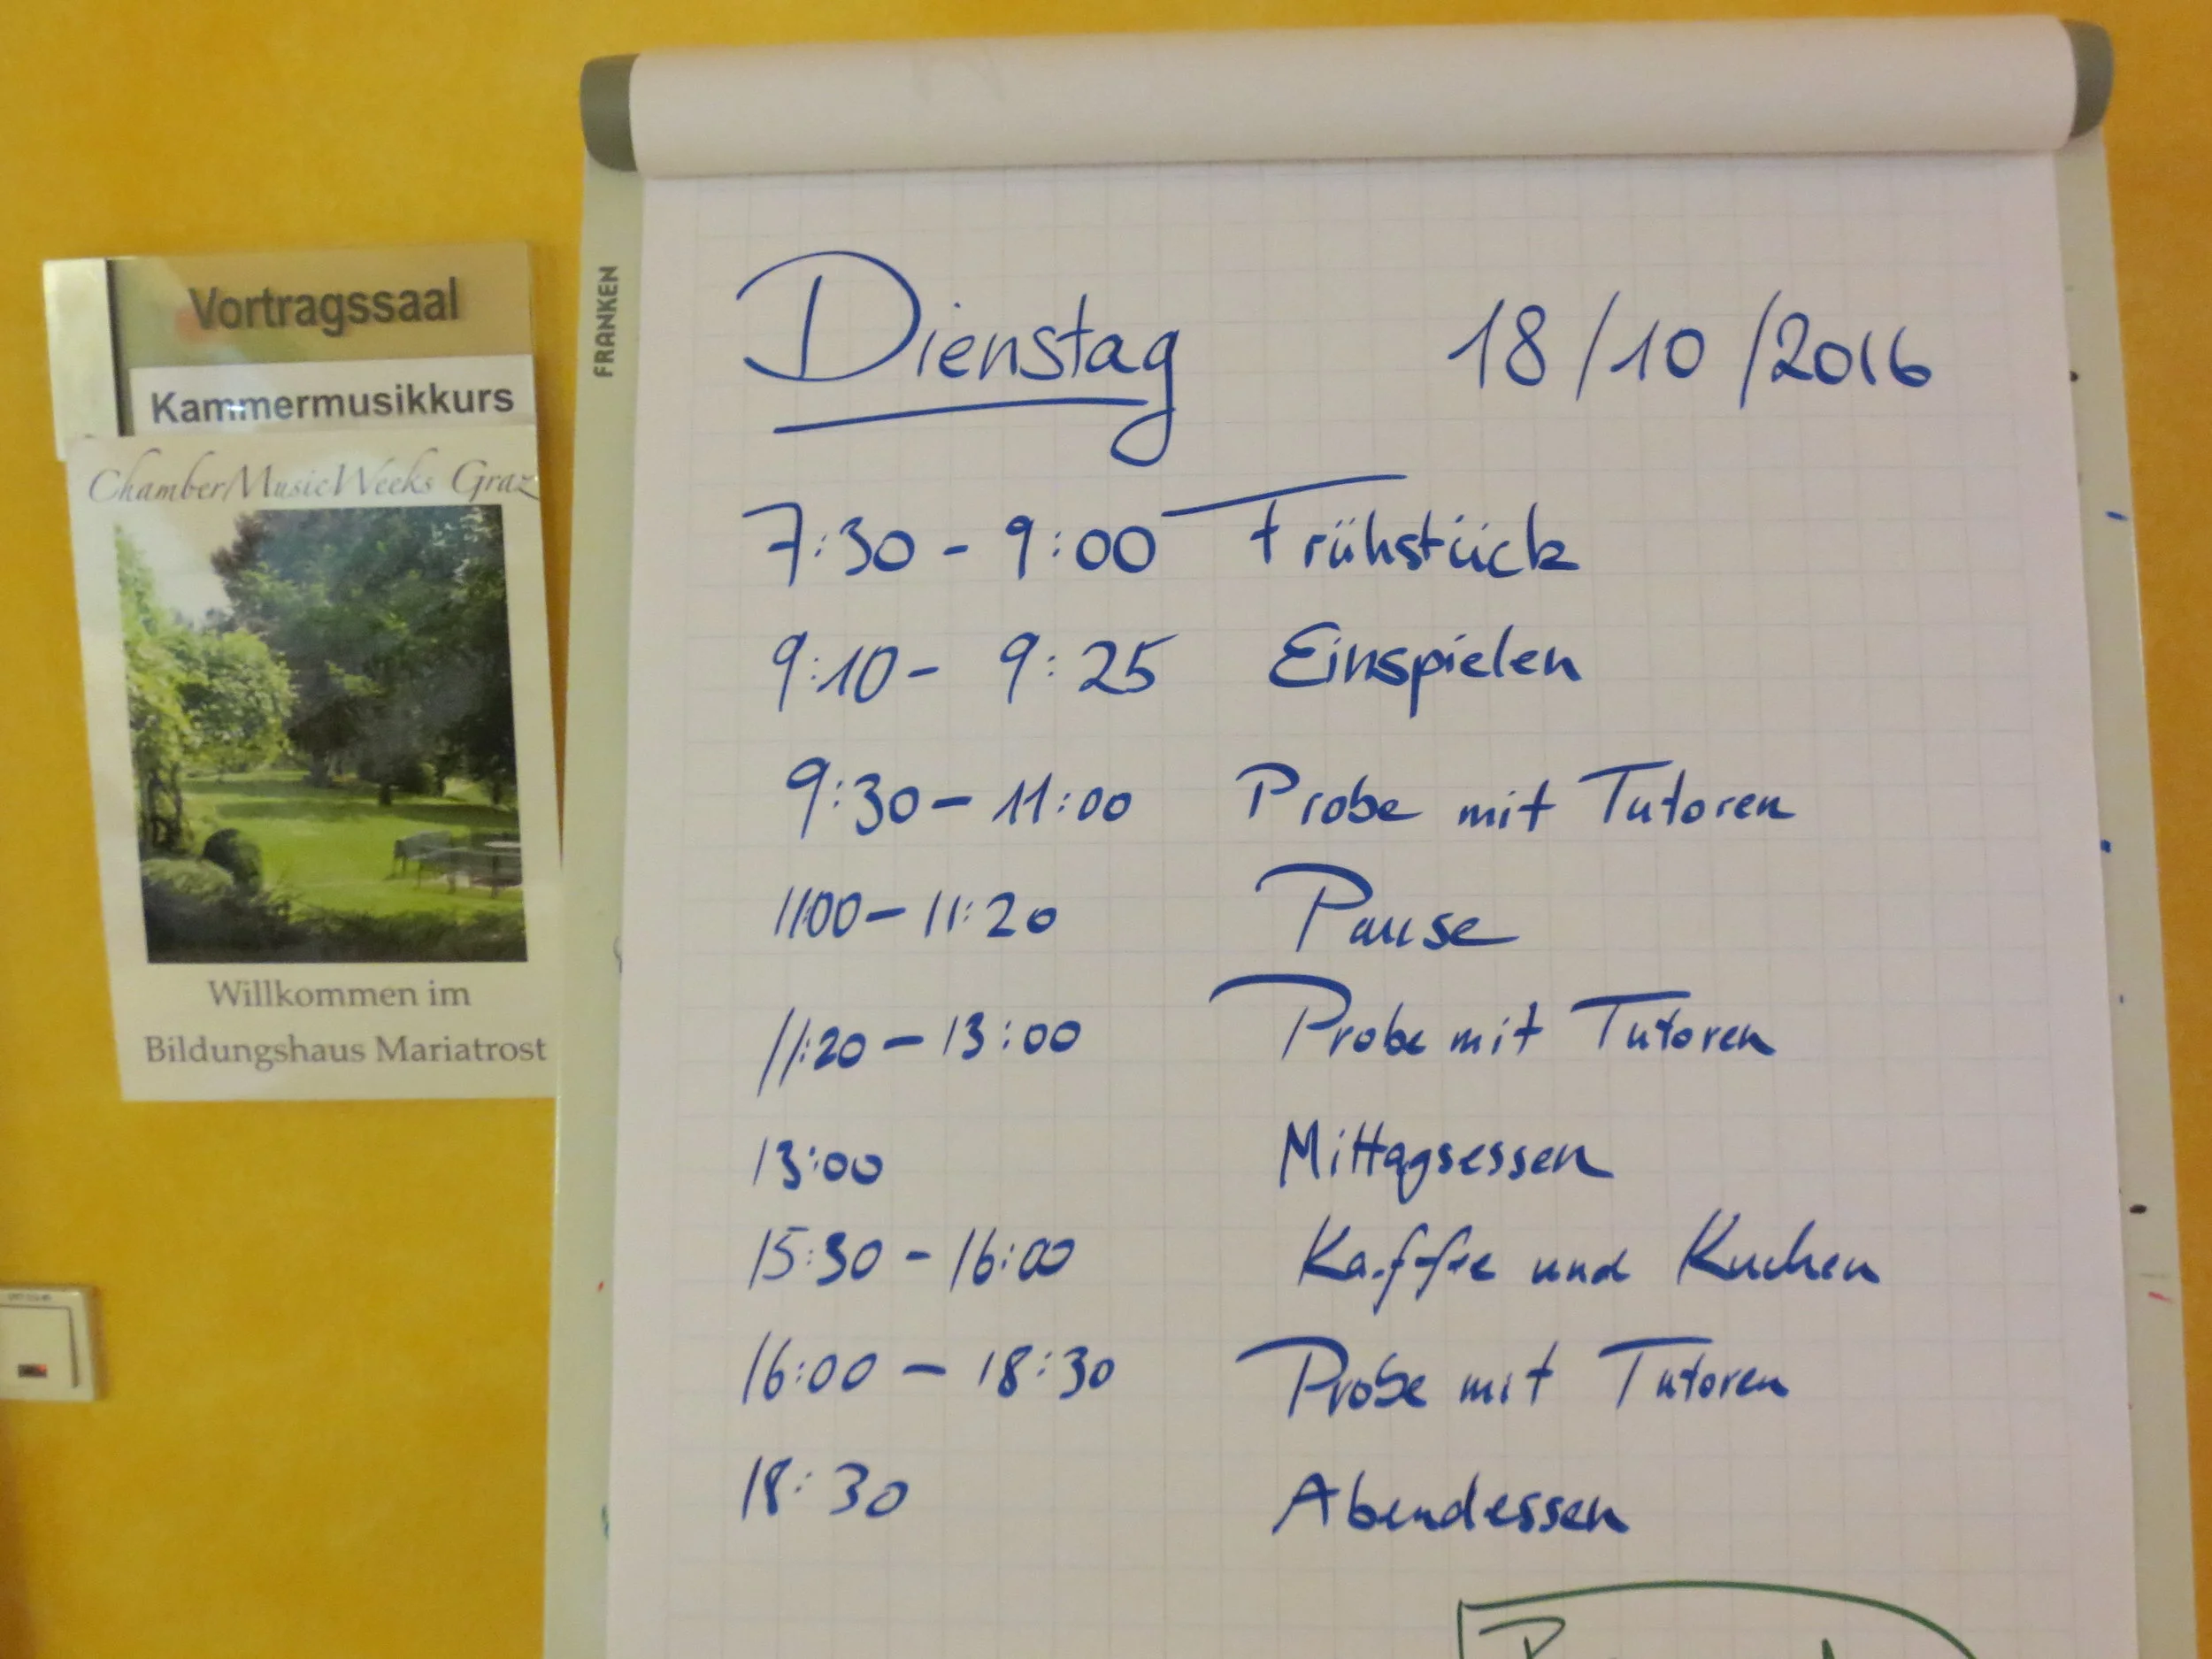 Vortragssaal
Kammermusikkurs
ChamberMusicWeeks Graz
Willkommen im
Bildungshaus Mariatrost
FRANKEN
Dienstag 18/10/2016
7:30 - 9:00 Frühstück
9:10 - 9:25 Einspielen
9:30 - 11:00 Probe mit Tutoren
11:00 - 11:20 Pause
11:20 - 13:00 Probe mit Tutoren
13:00 Mittagsessen
15:30 - 16:00 Kaffee und Kuchen
16:00 - 18:30 Probe mit Tutoren
18:30 Abendessen